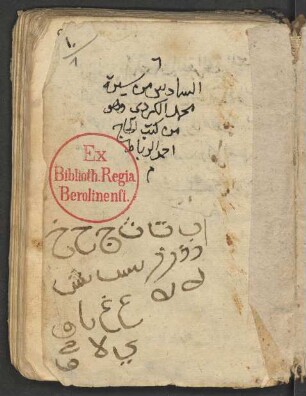 ٦
السادس من سيرة
محمد الكردي وهو
من كتب الحاج
احمد الرباط
م
Ex
Biblioth. Regia
Berolinensi.
ا ب ت ث ج ح خ
د ذ ر ز س ش
ع غ
لا ي